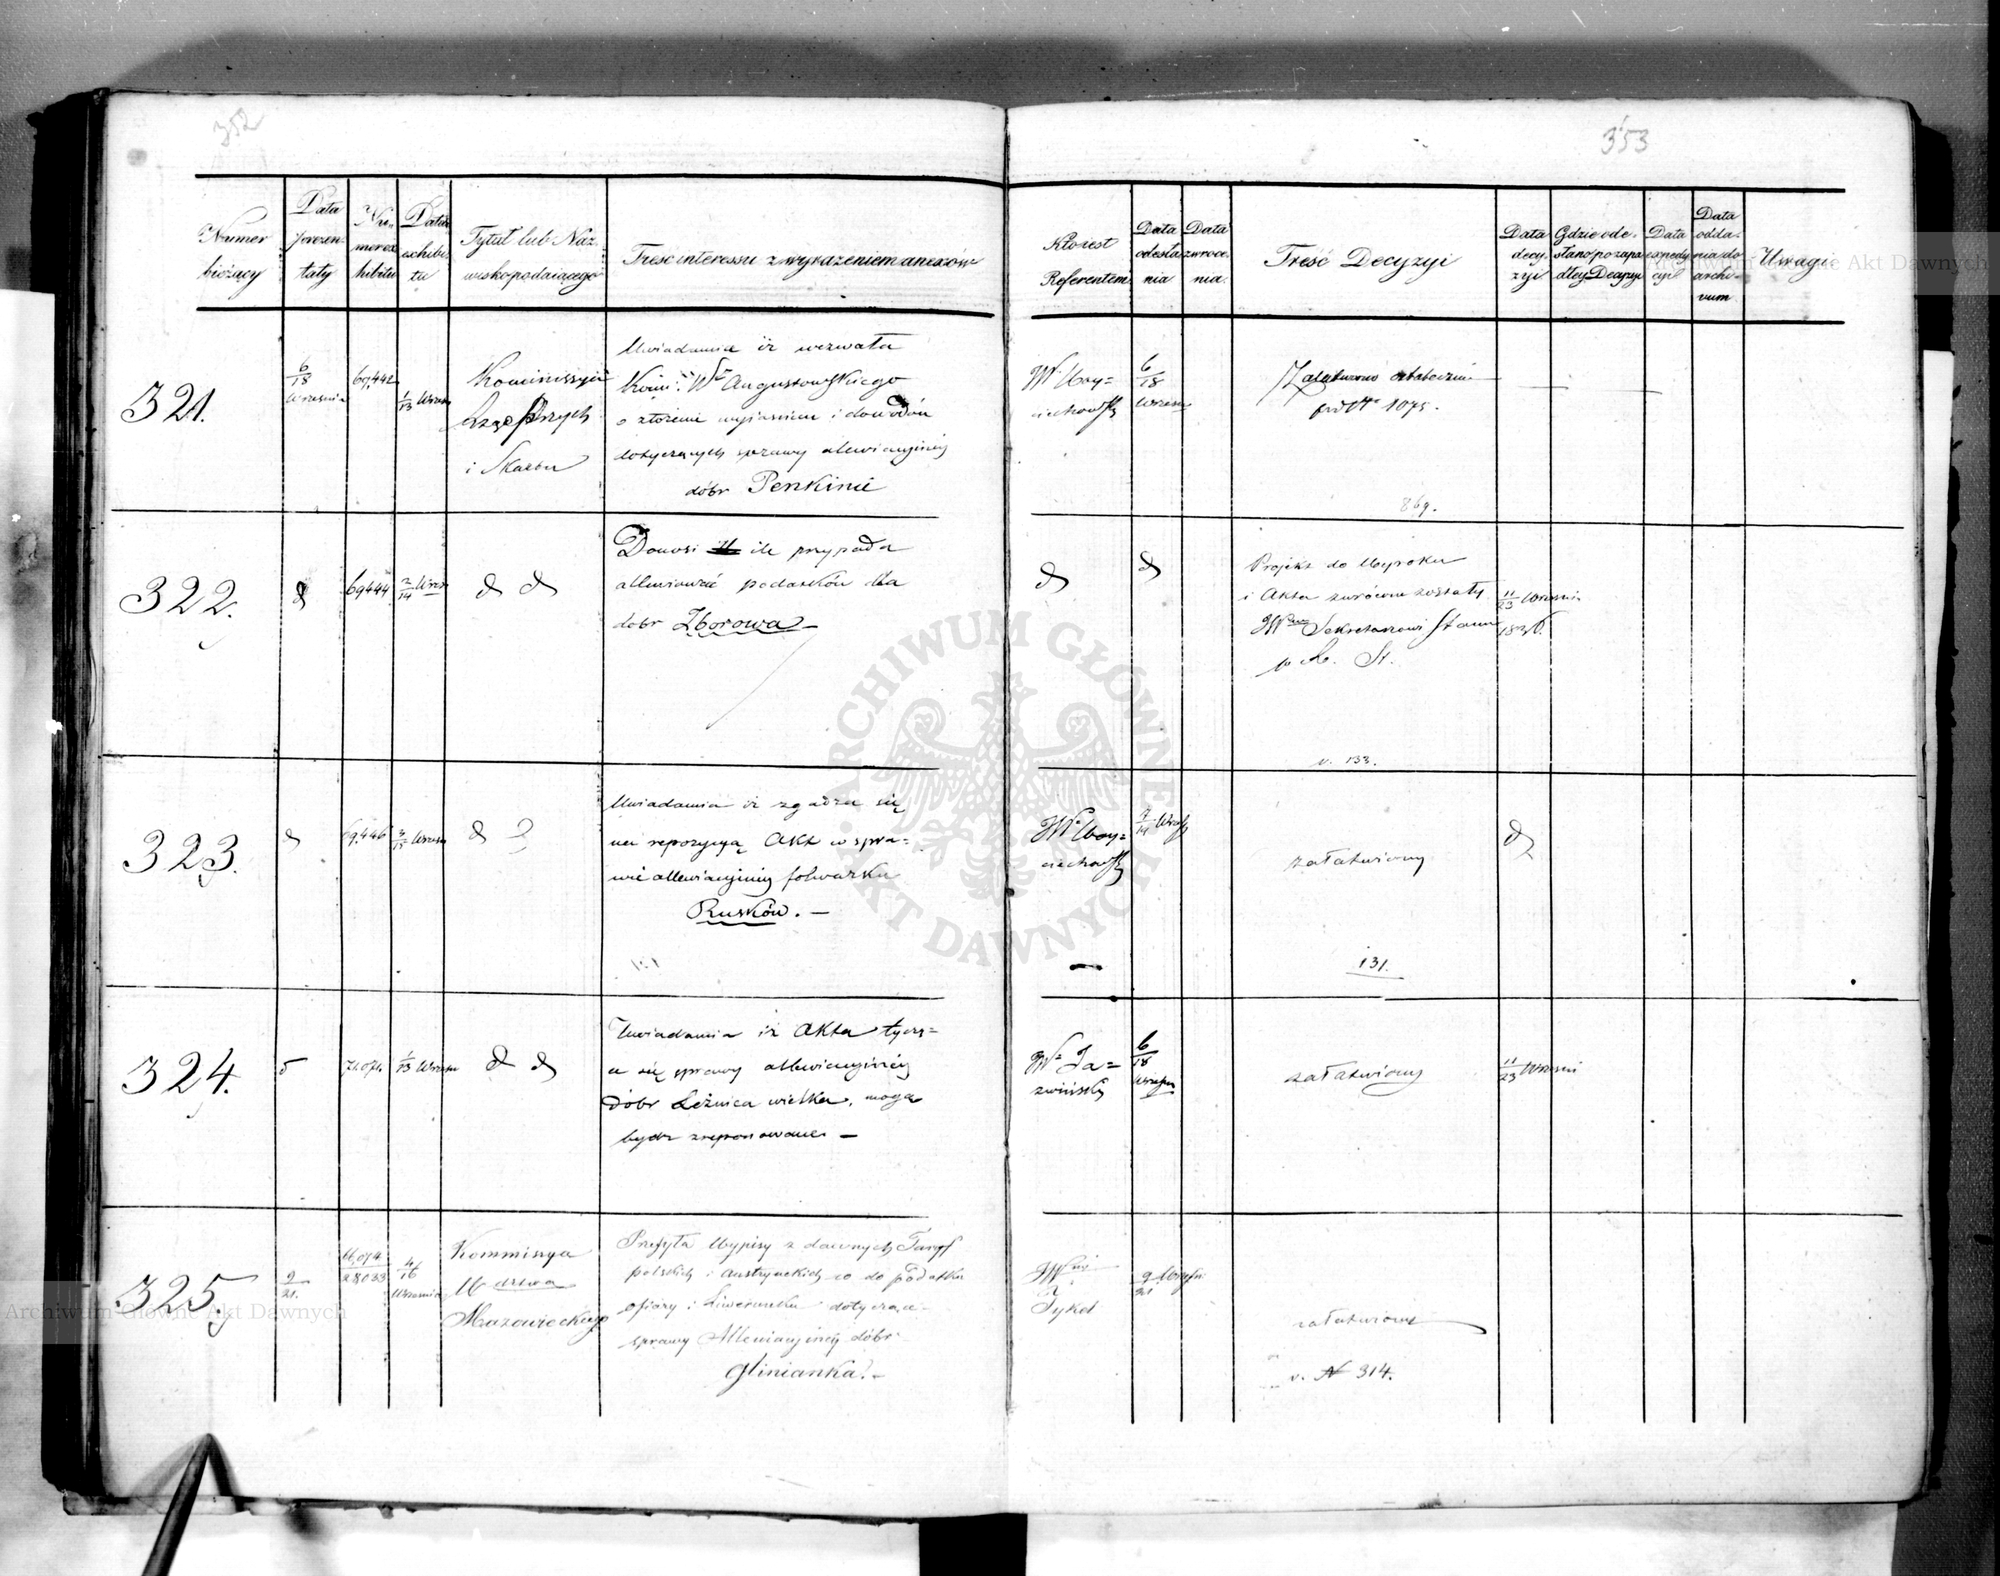 352
353
Numer bieżący
Data prezentaty
Numer exhibitu
Data exhibitu
Tytuł lub Nazwisko podaiącego
Treść interessu z wyrażeniem anexów
Kto iest Referentem
Data odesłania
Data zwrócenia
Treść Decyzyi
Data decyzyi
Gdzie odesłano po zapadłey Decyzyi
Data expedycyi
Data oddania do archivum
Uwagi
321.
6/18 Września
69,442
1/13 Wrześ
Kommissyia
Rząd Przych
i Skarbu
Uwiadamia iż wezwała
Kom: Wa Augustowskiego
o złożenie wyjaśnień i dowodów
dotyczących sprawy allewiacyjnej
dóbr
W. Woy=
ciechowski
6/18 Wrześn
Załatwiono ostatecznie
pod No 1075.
869.
322.
69444
2/14 Wrześ
Donosi ile przypada
allewiować podatków dla
dobr Zborowa —
Projekt do Wyroku
i Akta zwrócone zostały
JWmu Sekretarzowi Stanu
w R. St.
11/23 Września
v. 133.
323.
69.446
3/15 Wrześn
Uwiadamia iż zgadza się
na repozycyą Akt w spra=
wie allewiacyjnej folwarku
Rusków. —
W. Woy=
ciechowski
7/19 Wrześ
załatwiony
131.
324.
71.071.
1/13 Wrześn
Uwiadamia iż Akta tycz=
ce się sprawy allewiacyjnej
dóbr Leźnica wielka, mogą
bydź zreponowane. —
W. Ja=
zwiński
6/18 Wrześn
załatwiony
11/23 Wrześni
325
9/21.
66,074
28033
4/16 Września
Kommissya
Wdztwa
Mazowieckiego
Przesyła Wypisy z dawnych Taryf
polskich i Austryackich co do podatku
ofiary i Liwerunku dotyczące
sprawy Allewiacyjnej dóbr
Glinianka. —
Tykel
9/21 Wrześn
załatwione
v. N 314.
ARCHIWUM GŁÓWNE AKT DAWNYCH
Archiwum Główne Akt Dawnych
Archiwum Główne Akt Dawnych